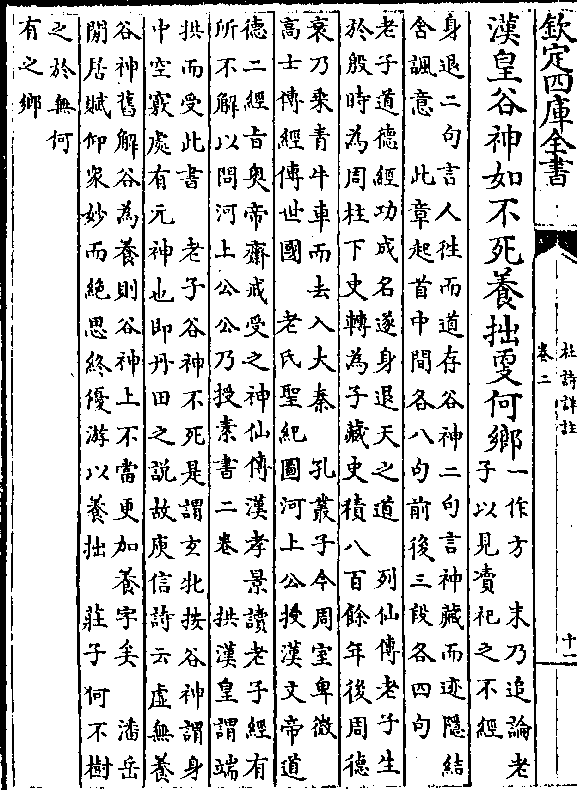 欽定四庫全書
杜詩詳註
卷二
十一
漢皇谷神如不死養拙更何鄉
一作方　末乃追論老
子以見瀆祀之不經
身退二句言人徃而道存谷神二句言神藏而迹隱結
含諷意　此章起首中間各八句前後三段各四句
老子道德經功成名遂身退天之道　列仙傳老子生
於殷時為周柱下史轉為子藏史積八百餘年後周德
衰乃乘青牛車而去入大秦　孔叢子今周室卑微
高士傳經傳世國　老氏聖紀圖河上公授漢文帝道
德二經旨奥帝齋戒受之神仙傳漢孝景讀老子經有
所不解以問河上公公乃授素書二卷　拱漢皇謂端
拱而受此書　老子谷神不死是謂玄牝按谷神謂身
中空竅處有元神也即丹田之説故庾信詩云虚無養
谷神舊解谷為養則谷神上不當更加養字矣　潘岳
閒居賦仰衆妙而絶思終優游以養拙　莊子何不樹
之於無何
有之鄉